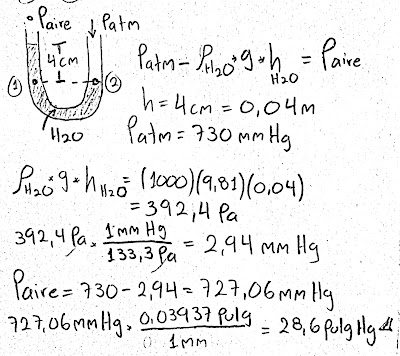 Paire Patm
4cm
① ②
H2O
Patm - ρH2O * g * hH2O = Paire
h = 4cm = 0,04m
Patm = 730 mm Hg
ρH2O * g * hH2O = (1000)(9,81)(0,04)
= 392,4 Pa
392,4 Pa * 1 mm Hg / 133,3 Pa = 2,94 mm Hg
Paire = 730 - 2,94 = 727,06 mm Hg
727,06 mm Hg * 0,03937 Pulg / 1 mm = 28,6 Pulg Hg